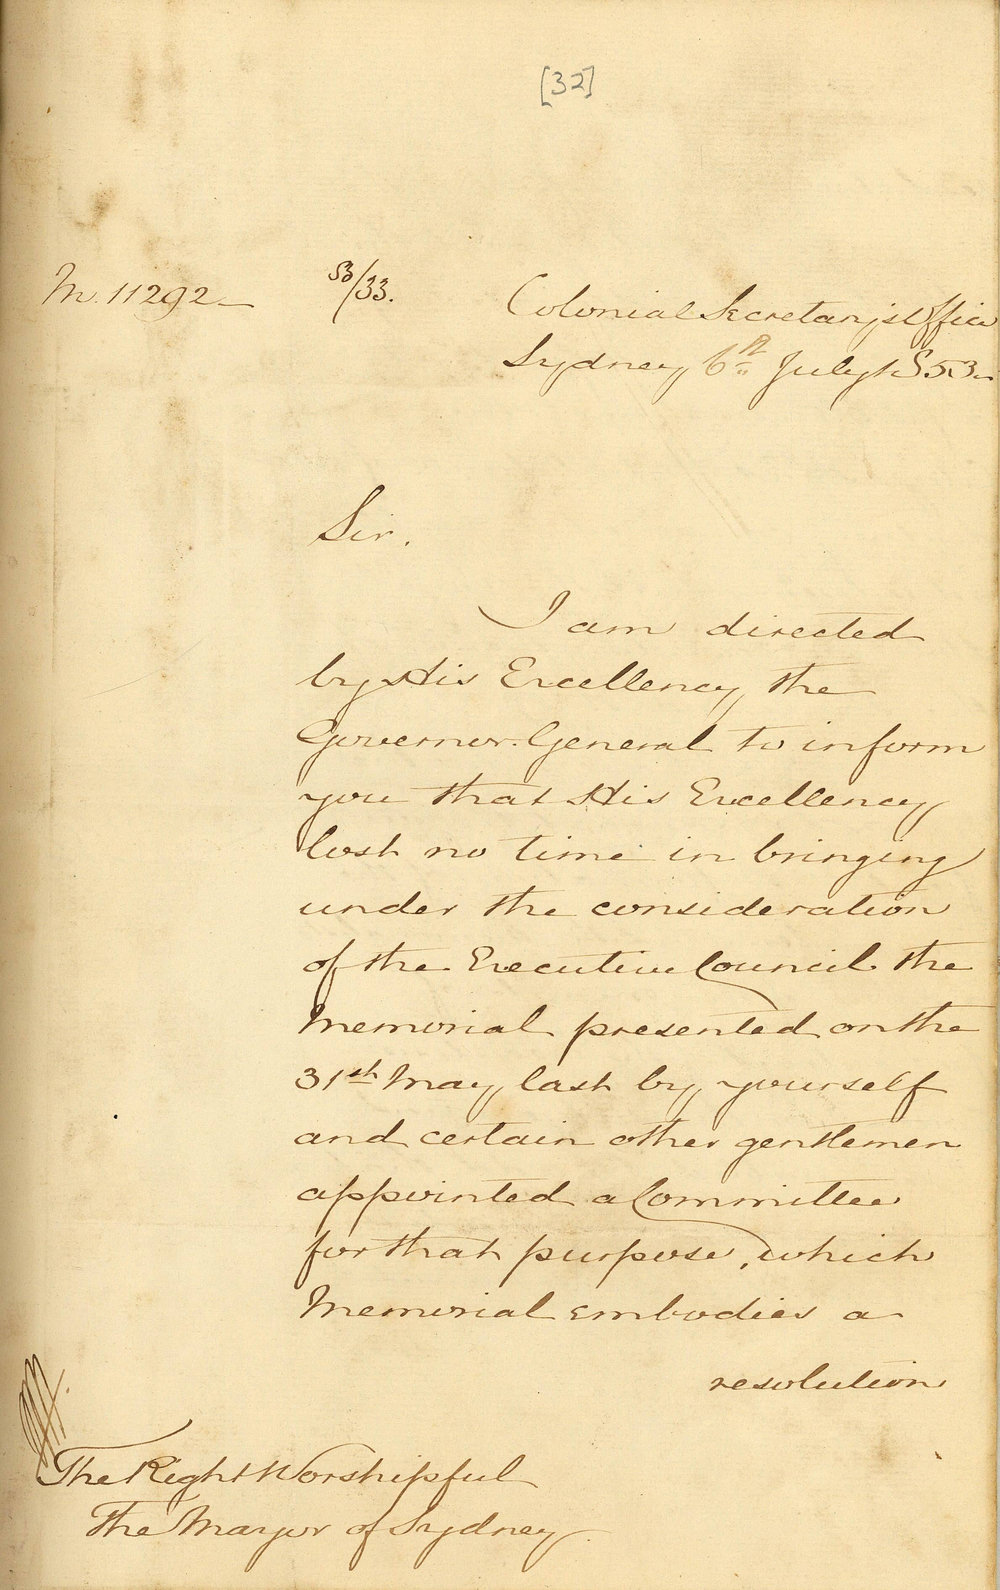 [32]
M. 11292 53/33. Colonial Secretary's Office
Sydney 6th July 1853
Sir.
I am directed
by His Excellency the
Governor. General to inform
you that His Excellency
lost no time in bringing
under the consideration
of the Executive Council the
Memorial presented on the
31st May last by yourself
and certain other gentlemen
appointed a Committee
for that purpose, which
Memorial embodies a
resolution
The Right Worshipful
The Mayor of Sydney